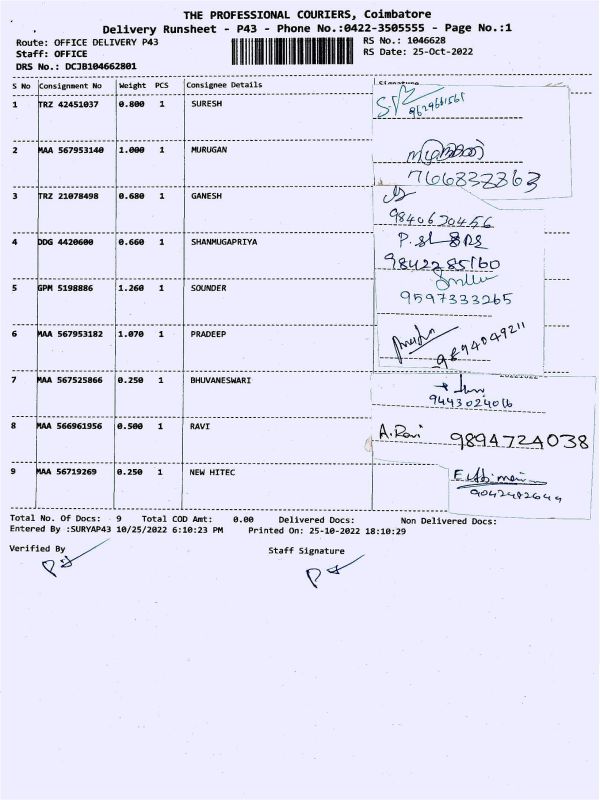 THE PROFESSIONAL COURIERS, Coimbatore
Delivery Runsheet - P43 - Phone No.:0422-3505555 - Page No.:1
Route: OFFICE DELIVERY P43
RS No.: 1046628
Staff: OFFICE
RS Date: 25-Oct-2022
DRS No.: DCJB104662801
S No Consignment No Weight PCS Consignee Details Signature
1 TRZ 42451037 0.800 1 SURESH
9629661561
2 MAA 567953140 1.000 1 MURUGAN
முருகன்
7666832863
3 TRZ 21078498 0.680 1 GANESH
9840630456
4 DDG 4420600 0.660 1 SHANMUGAPRIYA
9842285160
5 GPM 5198886 1.260 1 SOUNDER
9597333265
6 MAA 567953182 1.070 1 PRADEEP
9894049211
7 MAA 567525866 0.250 1 BHUVANESWARI
9443024016
8 MAA 566961956 0.500 1 RAVI
A.Ravi 9894724038
9 MAA 56719269 0.250 1 NEW HITEC
9042482644
Total No. Of Docs: 9 Total COD Amt: 0.00 Delivered Docs: Non Delivered Docs:
Entered By :SURYAP43 10/25/2022 6:10:23 PM Printed On: 25-10-2022 18:10:29
Verified By
Staff Signature